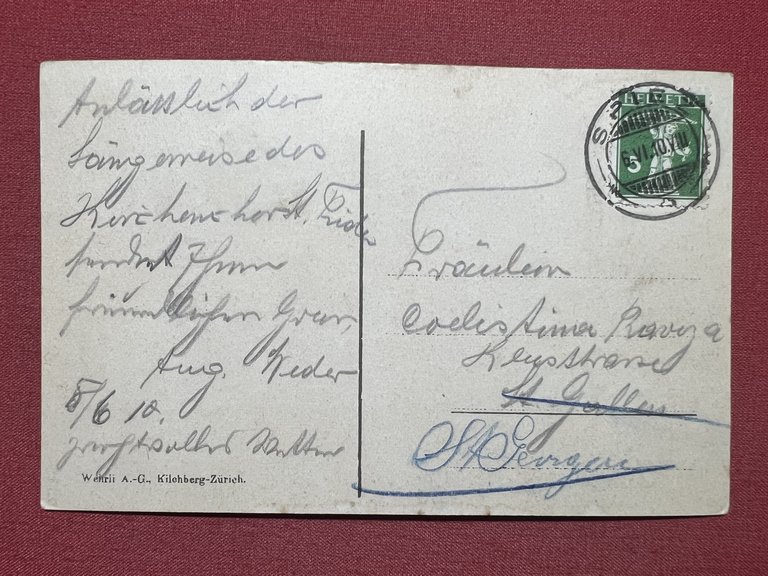 Anlässlich der
Sängerreise des
Kirchenchors St. Fiden
sendet Ihnen
freundlichen Gruss,
Aug. Weder
5/6 10.
prachtvolles Wetter
Wehrli A.-G., Kilchberg-Zürich.
HELVETIA
5
6.VI.10.VIII
Fräulein
Coelestina Raviza
St. Gallen
St Georgen